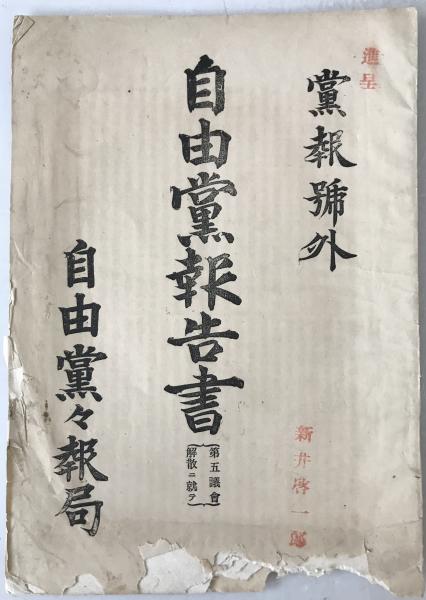 進呈
黨報號外
新井啓一郎
自由黨報告書
第五議會
解散ニ就テ
自由黨々報局